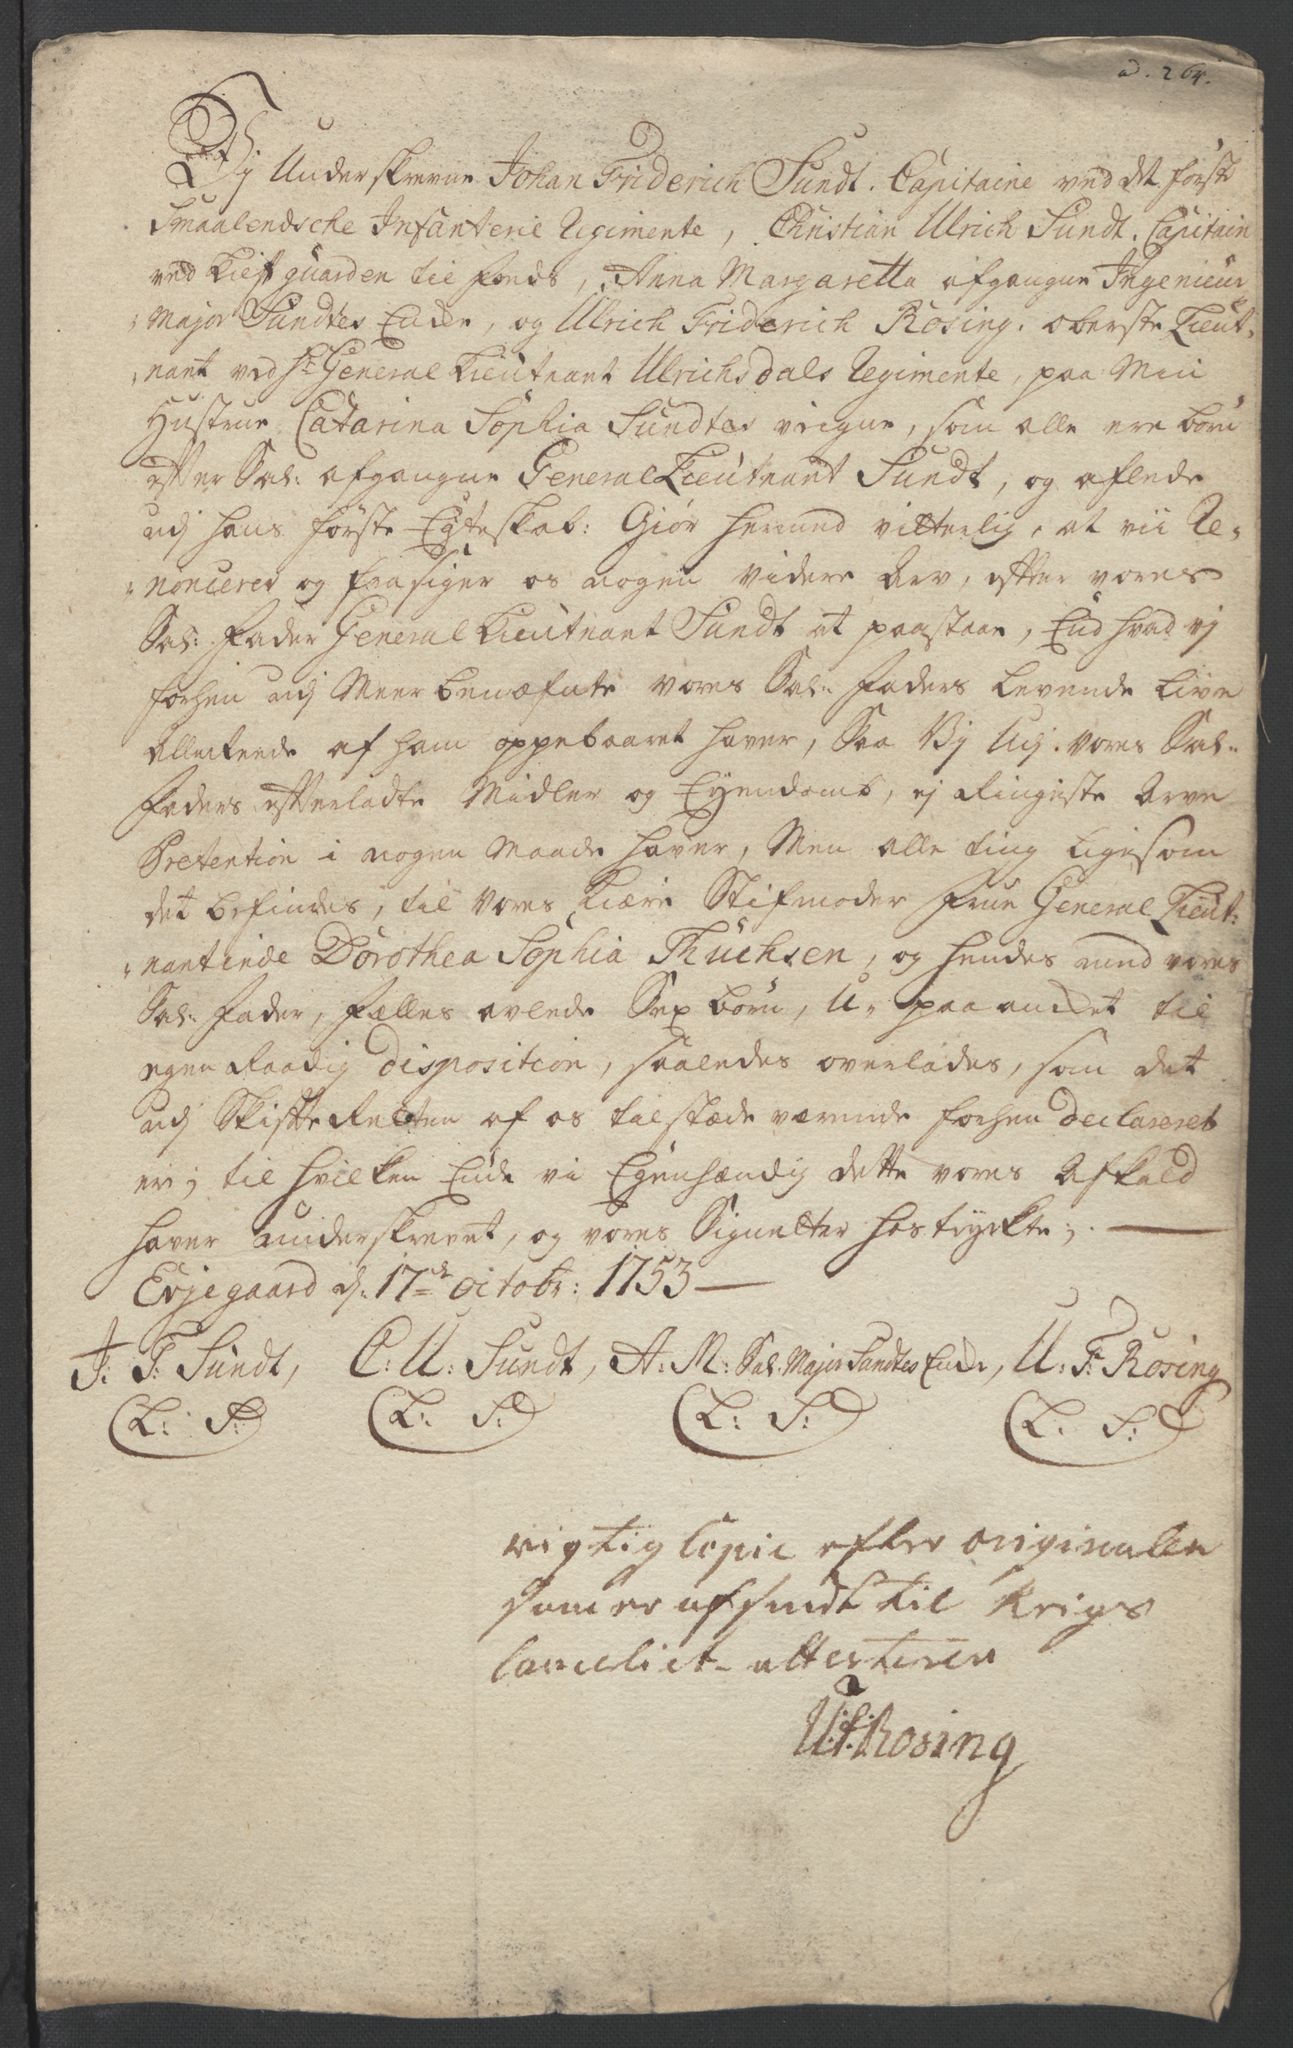 d. 264.
Vij Underskrevne Johan Friderich Sundt. Capitaine ved det første
Smaalendsche Infanterie Regimente, Christian Ulrich Sundt. Capitain
ved Lief guarden til fods, Anna Margaretta afgangne Ingenieur
Major Sundtes Encke, og Ulrich Friderich Rosing. oberste Lieut-
nant ved Hr General Lieutnant Ulrichsdals Regimente, paa Min
Hustrue Catarina Sophia Sundtes veigne, som alle ere børn
efter Sal: afgangne General Lieutnant Sundt, og aflede
udj hans første Egteskab: Giør hermed vitterlig, at vii Re-
noncerer og frasiger os nogen videre Arv, efter vores
Sal: Fader General Lieutnant Sundt at paastaae, End hvad vj
forhen udj Meerbenæfnte vores Sal: Faders Levende Live
Allerede af ham oppebaaret haver, Saa Vij Udj. vores Sal:
Faders efterladte Midler og Eyendomb, ej Ringeste Arve
Pretention i nogen Maade haver, Men alle ting ligesom
det befindes, til vores kiære Stifmoder Frue General Lieut-
nantinde Dorothea Sophia Thuchsen, og hendes med vores
Sal: Fader, Fælles avlede Sex børn, U-paaancket til
egen Raadig Disposition, saaledes overlades, som det
udj Skifte Retten af os tilstæde værende forhen declareret
er; til hvilken Ende vi Egenhændig dette vores Afkald
haver underskrevet, og vores Signetter hostrÿckte;
Evjegaard d. 17de octobr: 1753
J: F: Sundt, C: U: Sundt, A: M: Sal. Major Sundtes Encke, U: F: Rosing
L: S: L: S: L: S: L: S:
rigtig Copie efter originalen
som er afsendt til Krigs
Canceliet attesterer
U:f:Rosing